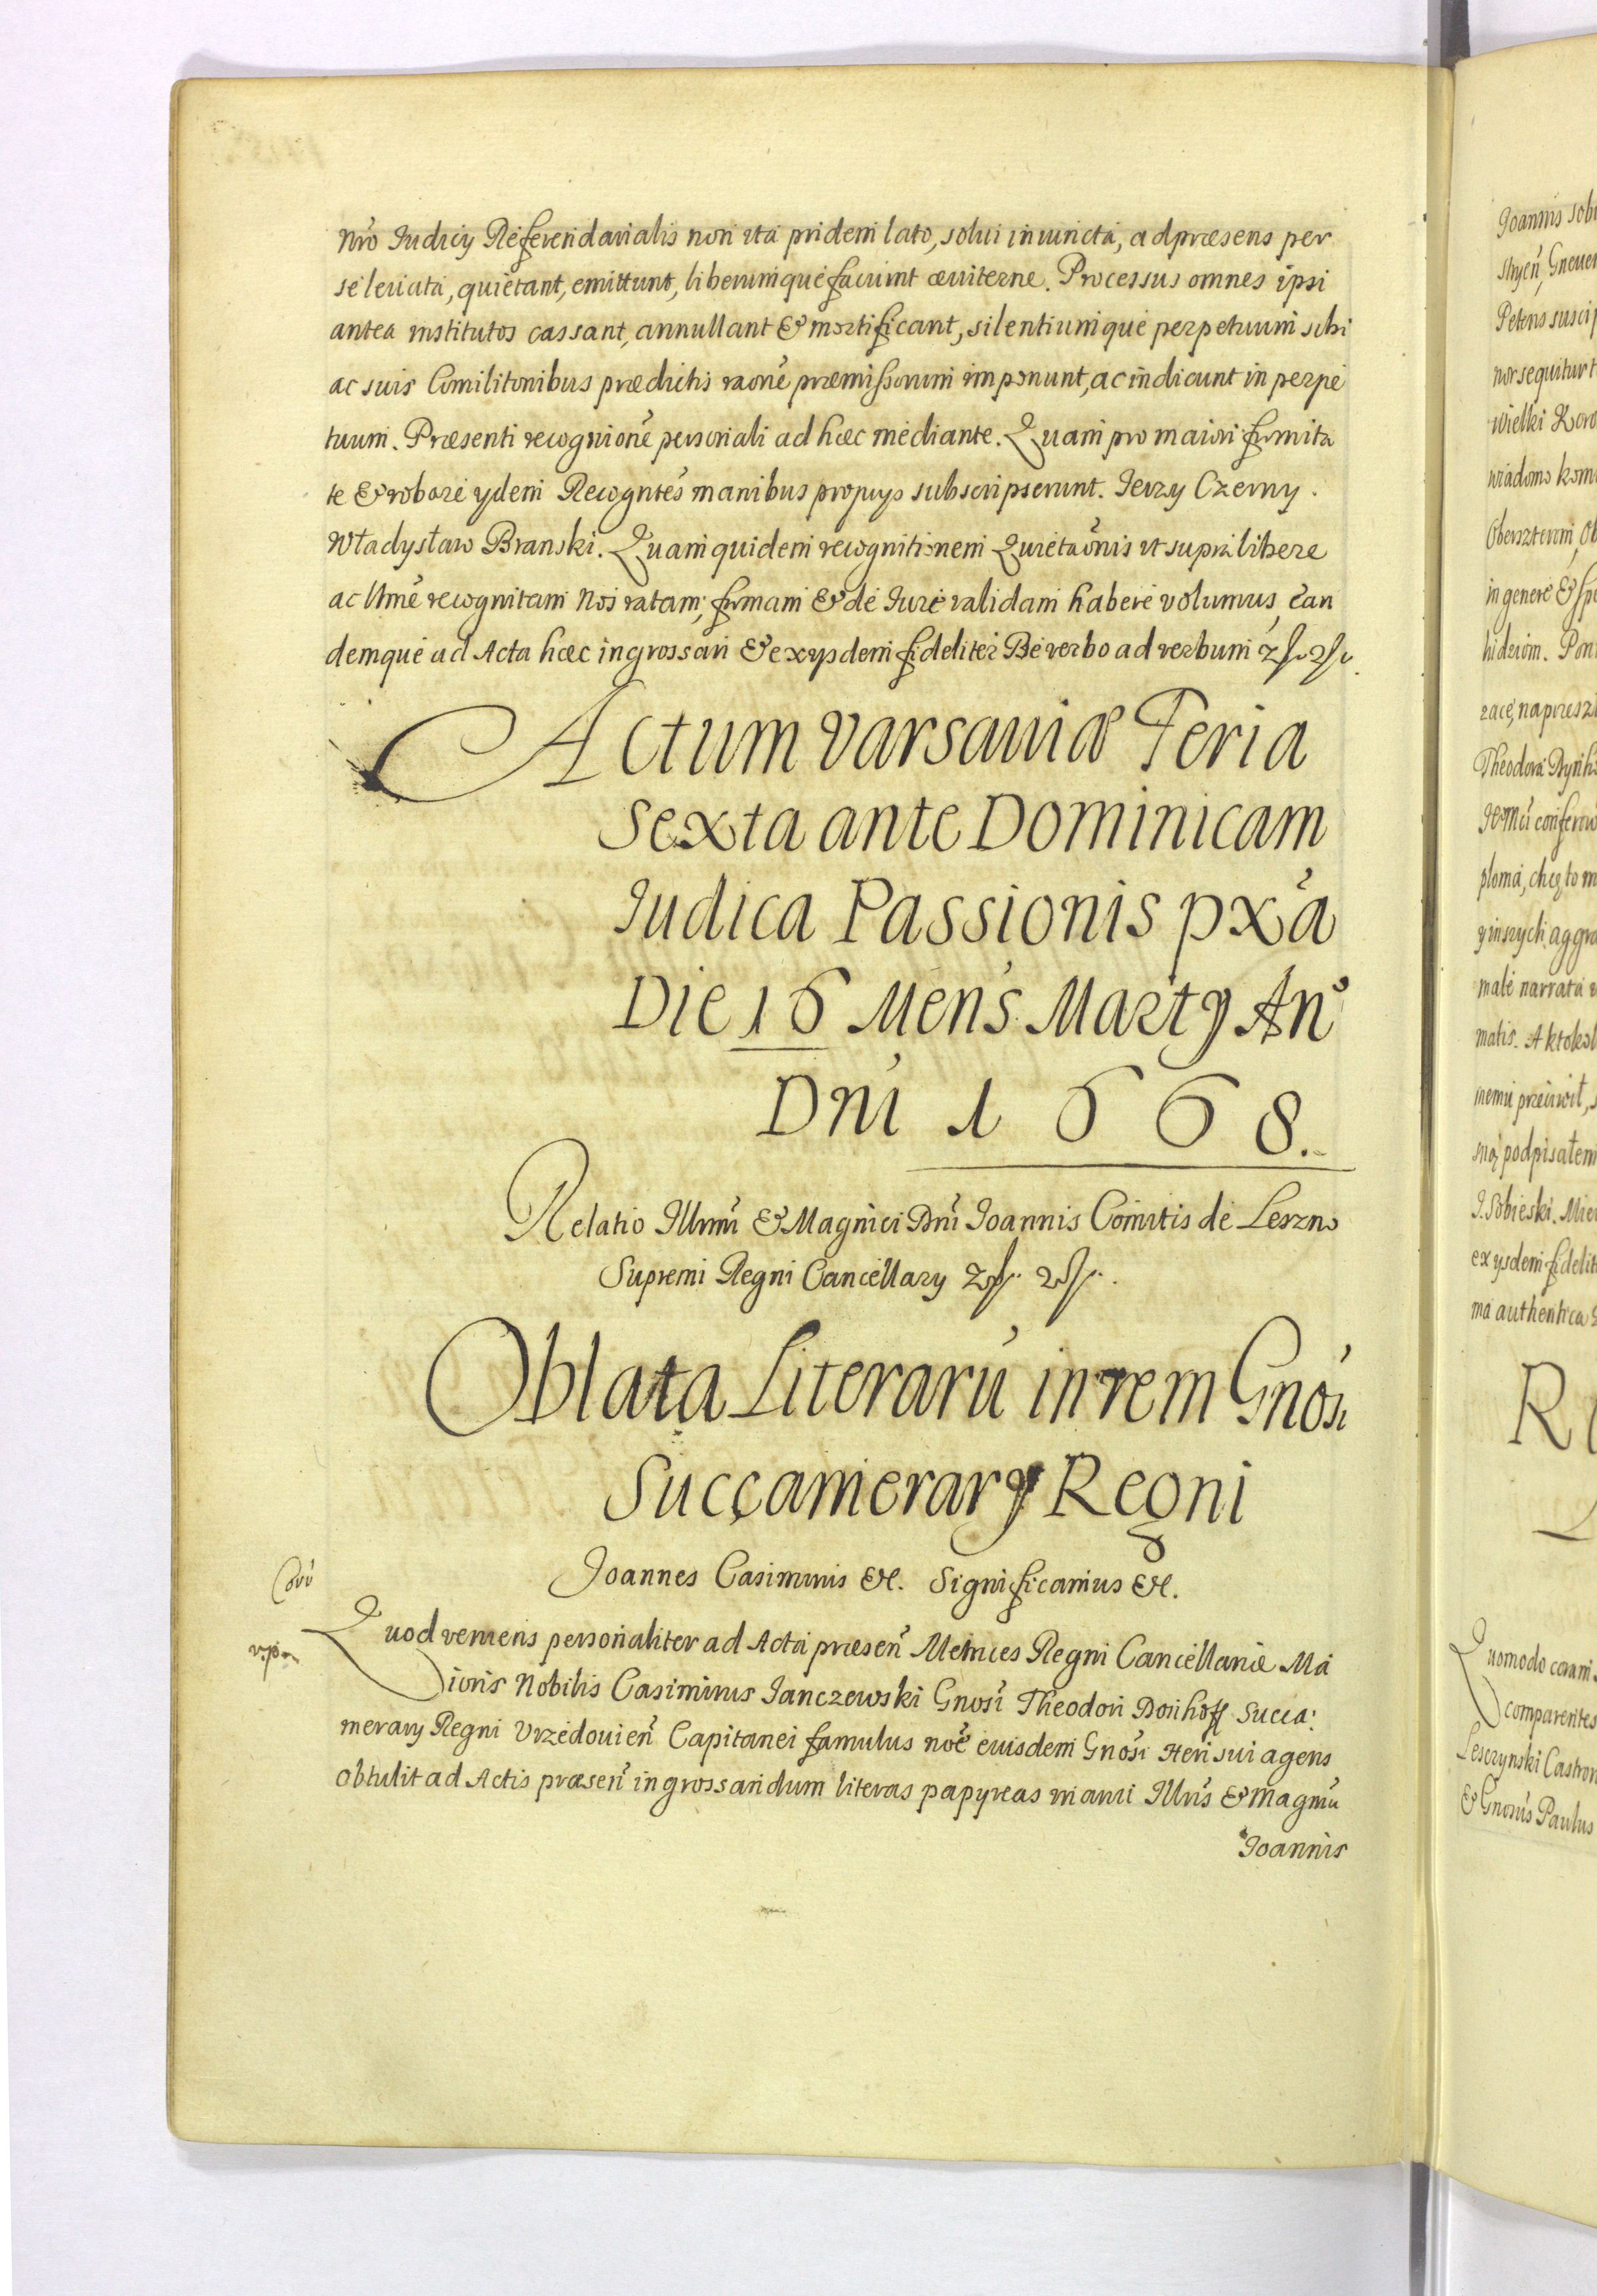 nro Iudicij Referendarialis non ita pridem lato, solui iniuncta, ad præsens per
se leuata, quietant, emittunt, liberumque faciunt æuiterne. Processus omnes ipsi
antea institutos cassant, annullant & mortificant, silentiumque perpetuum sibi
ac suis Comilitonibus prædictis raone præmissorum imponunt, ac indicunt in perpe
tuum. Præsenti recognione personali ad hæc mediante. Quam pro maiori firmita
te & robore ydem Recogntes manibus proprys subscripserunt. Jerzy Czerny.
Władysław Branski. Quam quidem recognitionem Quietaonis vt supra libere
ac lttme recognitam Nos ratam, firmam & de Iure validam habere volumus, ean
demque ad Acta hæc ingrossari & ex ysdem fideliter De verbo ad verbum
Actum Varsauiæ Feria
Sexta ante Dominicam
Iudica Passionis pxa
Die 16 Mens Marty Ano
Dni 1668.
Relatio Illrmi & Magnici Dni Joannis Comitis de Leszno
Supremi Regni Cancellary
Oblata Literaru in rem Gnosi
Succamerary Regni
Joannes Casimirus &c. Significamus &c.
Quod veniens personaliter ad Acta præsen Metrices Regni Cancellariæ Ma
ioris Nobilis Casimirus Janczewski Gnosi Theodori Donhoff Succa:
merary Regni Vrzedouien Capitanei famulus noe eiusdem Gnosi Heri sui agens
obtulit ad Actis præsen ingrossandum literas papyreas manu Illris & Magnci
Joannis
Joannis Sobi
Petens suscip
nor sequitur t
wielki Koro
wiadomo komu
in genere & spe
Theodora Dynho
male narrata
matis. A ktokol
ną podpisałem
J. Sobieski. Mie
ex ysdem fidelit
ma authentica
Quomodo coram
comparentes
Lesczynski Castron
& Gnosus Paulus